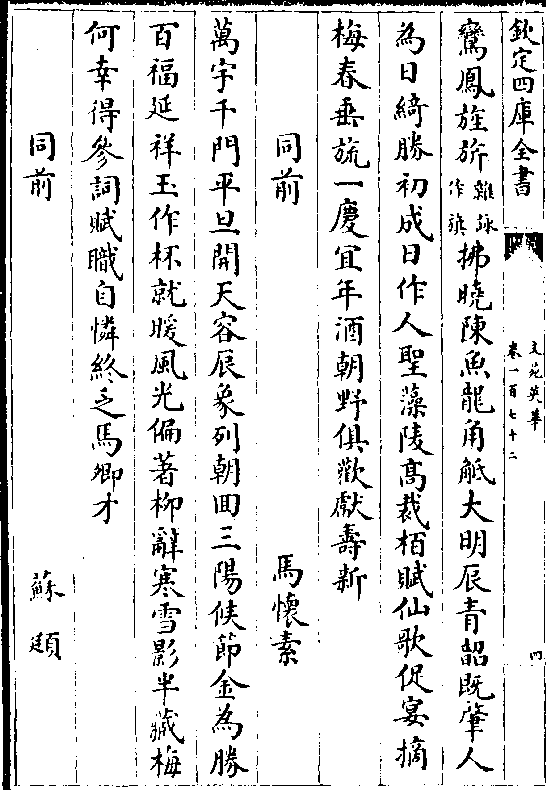 欽定四庫全書
文苑英華
卷一百七十二
四
鸞鳳旌旂雜詠作旗拂曉陳魚龍角觝大明辰青韶既肇人
為日綺勝初成日作人聖藻陵髙裁栢賦仙歌促宴摘
梅春垂旒一慶宜年酒朝野俱歡獻壽新
同前 馬懷素
萬宇千門平旦開天容辰象列朝回三陽候節金為勝
百福延祥玉作杯就暖風光偏著柳辭寒雪影半藏梅
何幸得參詞賦職自憐終乏馬卿才
同前 蘇頲